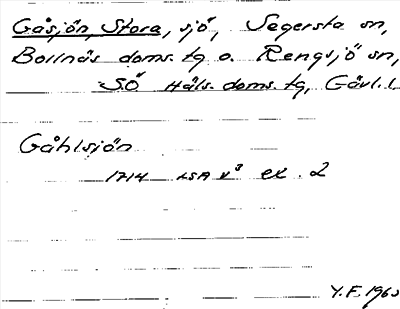 Gåsjön, Stora, sjö, Segersta sn,
Bollnäs doms. tg o. Rengsjö sn,
SÖ Häls. doms. tg, Gävl. l.
Gåhlsjön
1714 LSA V³ ex. 2
Y.F. 1960